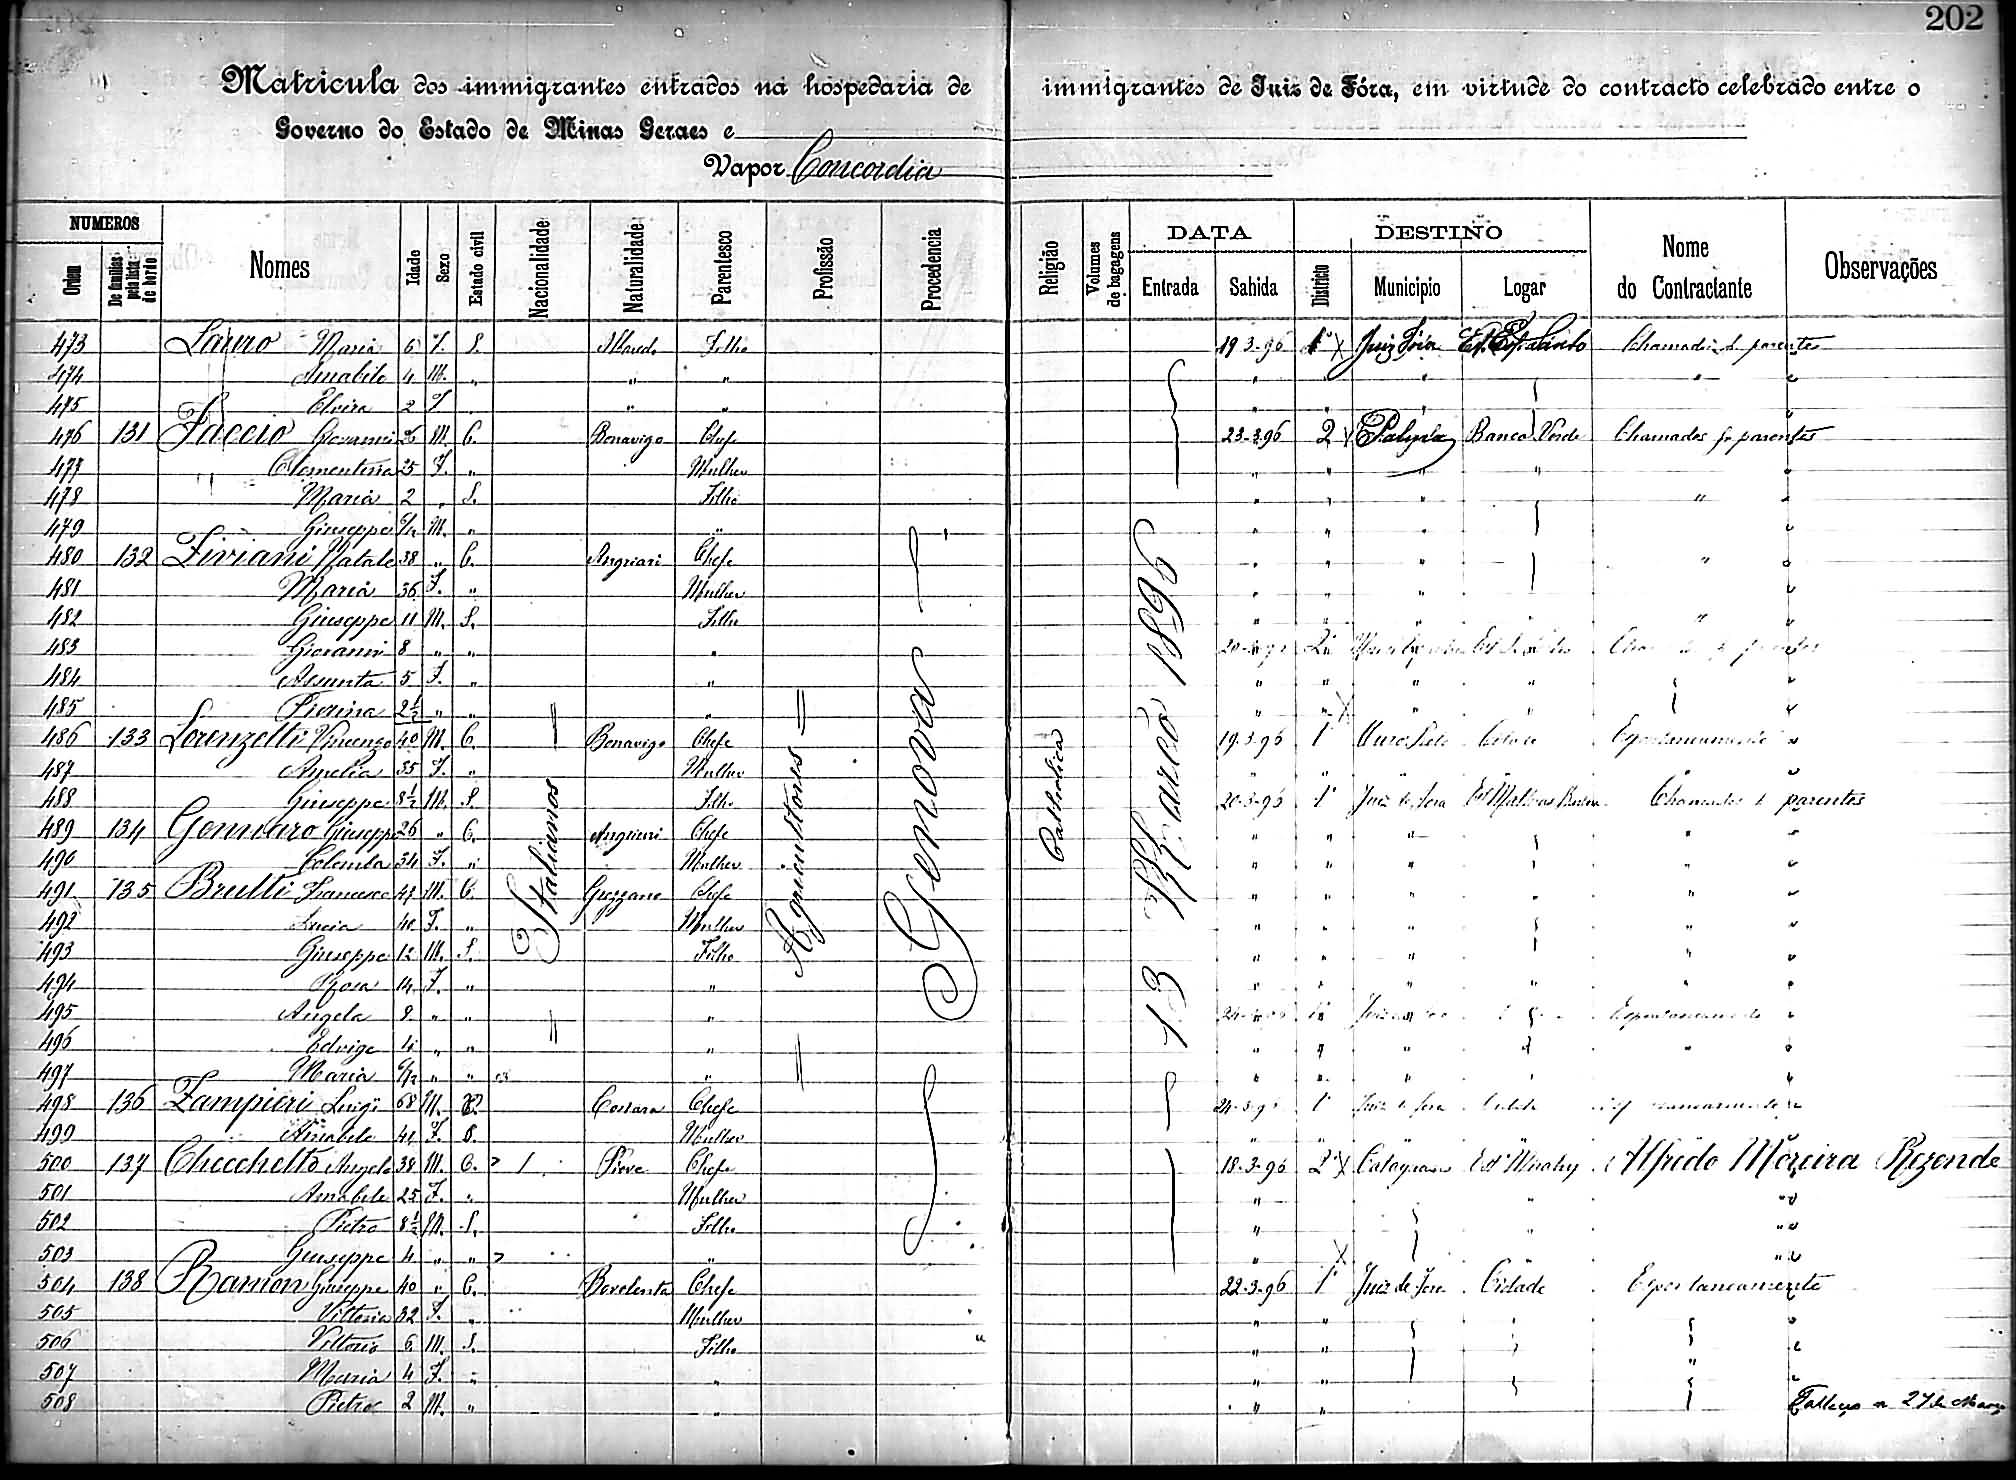 202
Matricula dos immigrantes entrados na hospedaria de immigrantes de Juiz de Fóra, em virtude do contracto celebrado entre o
Governo do Estado de Minas Geraes e
Vapor Concordia
NUMEROS DATA DESTINO
Ordem De familias pela lista de bordo Nomes Idade Sexo Estado civil Nacionalidade Naturalidade Parentesco Profissão Procedencia Religião Volumes de bagagens Entrada Sahida Districto Municipio Logar Nome do Contractante Observações
Italianos
Agricultores
Genova
Catholica
13 Março 1896
473 Lauro Maria 6 F. S. Filho 19-3-96 1º Juiz Fóra Chamados de parentes
474 Amabile 4 M. " " " " " " "
475 Elvira 2 F " " " " "
476 131 Faccio Giovanni 26 M. C. Bonavigo Chefe 23-3-96 2 Palmyra Banco Verde Chamados pr parentes
477 Clementina 25 F. " Mulher " " " "
478 Maria 2 " S. Filho " " " "
479 Giuseppe 6/12 M. " " " " "
480 132 Viviani Natale 38 " C. Angiari Chefe " " " "
481 Maria 36 F. " Mulher " " "
482 Giuseppe 11 M. S. Filho " " " "
483 Giovanni 8 " " "
484 Assunta 5 F. " " " " " "
485 Pierina 2½ " " " " " " "
486 133 Lorenzetti Vincenzo 40 M. C. Bonavigo Chefe 19-3-96 1º Ouro Preto Espontaneamente "
487 Amelia 35 F. " Mulher " " " "
488 Giuseppe 8½ M. S. Filho 20-3-96 1º Juiz de Fora Chamados de parentes
489 134 Gennaro Giuseppe 26 " C. Angiari Chefe " " " "
490 Colomba 34 F. " Mulher " " " "
491 135 Brutti Francesco 43 M. C. Gezzano Chefe " " " " "
492 Lucia 40 F. " Mulher " " " "
493 Giuseppe 12 M. S. Filho " " " "
494 Rosa 14 F. " " " " " " "
495 Angela 8 " " " Espontaneamente
496 Edvige 4 " " " " " " "
497 Maria 6/12 " " " " " "
498 136 Zampieri Luigi 68 M. Chefe 24-3-96 1º Juiz de Fora Cidade
499 Amabile 41 F. Mulher " "
500 137 Checchetto Angelo 38 M. C. Pieve Chefe 18-3-96 2º Cataguases Alfredo Moreira Rezende
501 Amabile 25 F. " Mulher " " "
502 Pietro 8½ M. S. Filho " " "
503 Giuseppe 4 " " " " "
504 138 Ramon Giuseppe 40 " C. Bovolenta Chefe 22-3-96 1º Juiz de Fora Cidade Espontaneamente
505 Vittoria 32 F. " Mulher " "
506 Vittorio 6 M. S. Filho " "
507 Maria 4 F. " " " " "
508 Pietro 2 M. " " " " Falleceu a 27 de Março